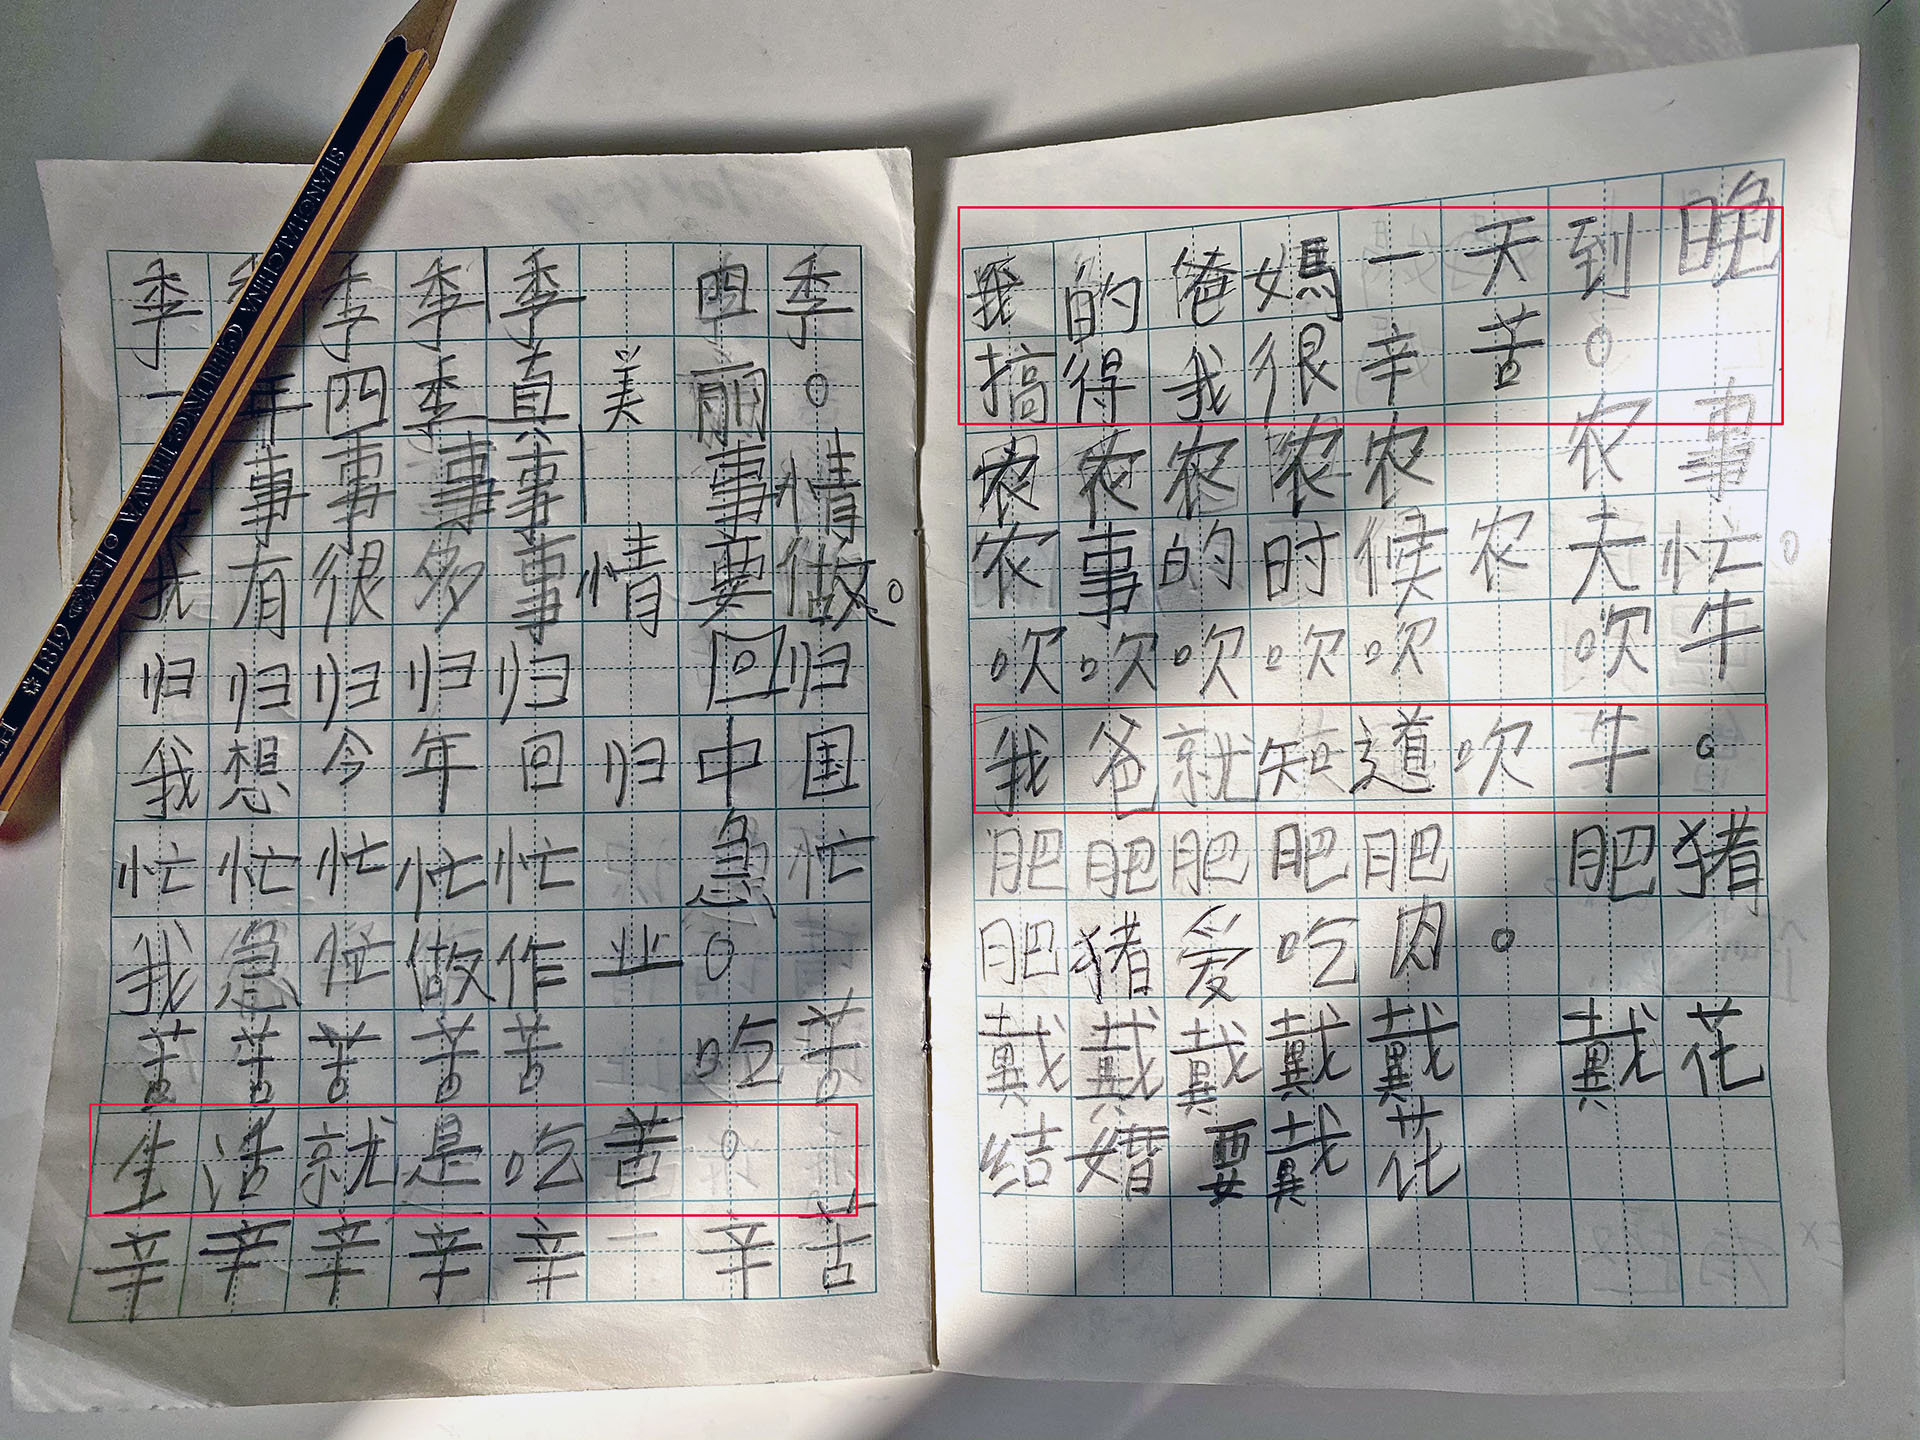 SHANGHAI CHINA CHUNG HWA 6181
季季季季季 四季。
一年四季真美丽。
事事事事 事情
我有很多事情要做。
归归归归归 回归
我想今年回归中国
忙忙忙忙忙 急忙
我急忙做作业。
苦苦苦苦苦 吃苦
生活就是吃苦。
辛辛辛辛辛 辛苦
我的爸媽一天到晚
搞得我很辛苦。
农农农农农 农事
农事的时候农夫忙。
吹吹吹吹吹 吹牛
我爸就知道吹牛。
肥肥肥肥肥 肥猪
肥猪爱吃肉。
戴戴戴戴戴 戴花
结婚要戴花